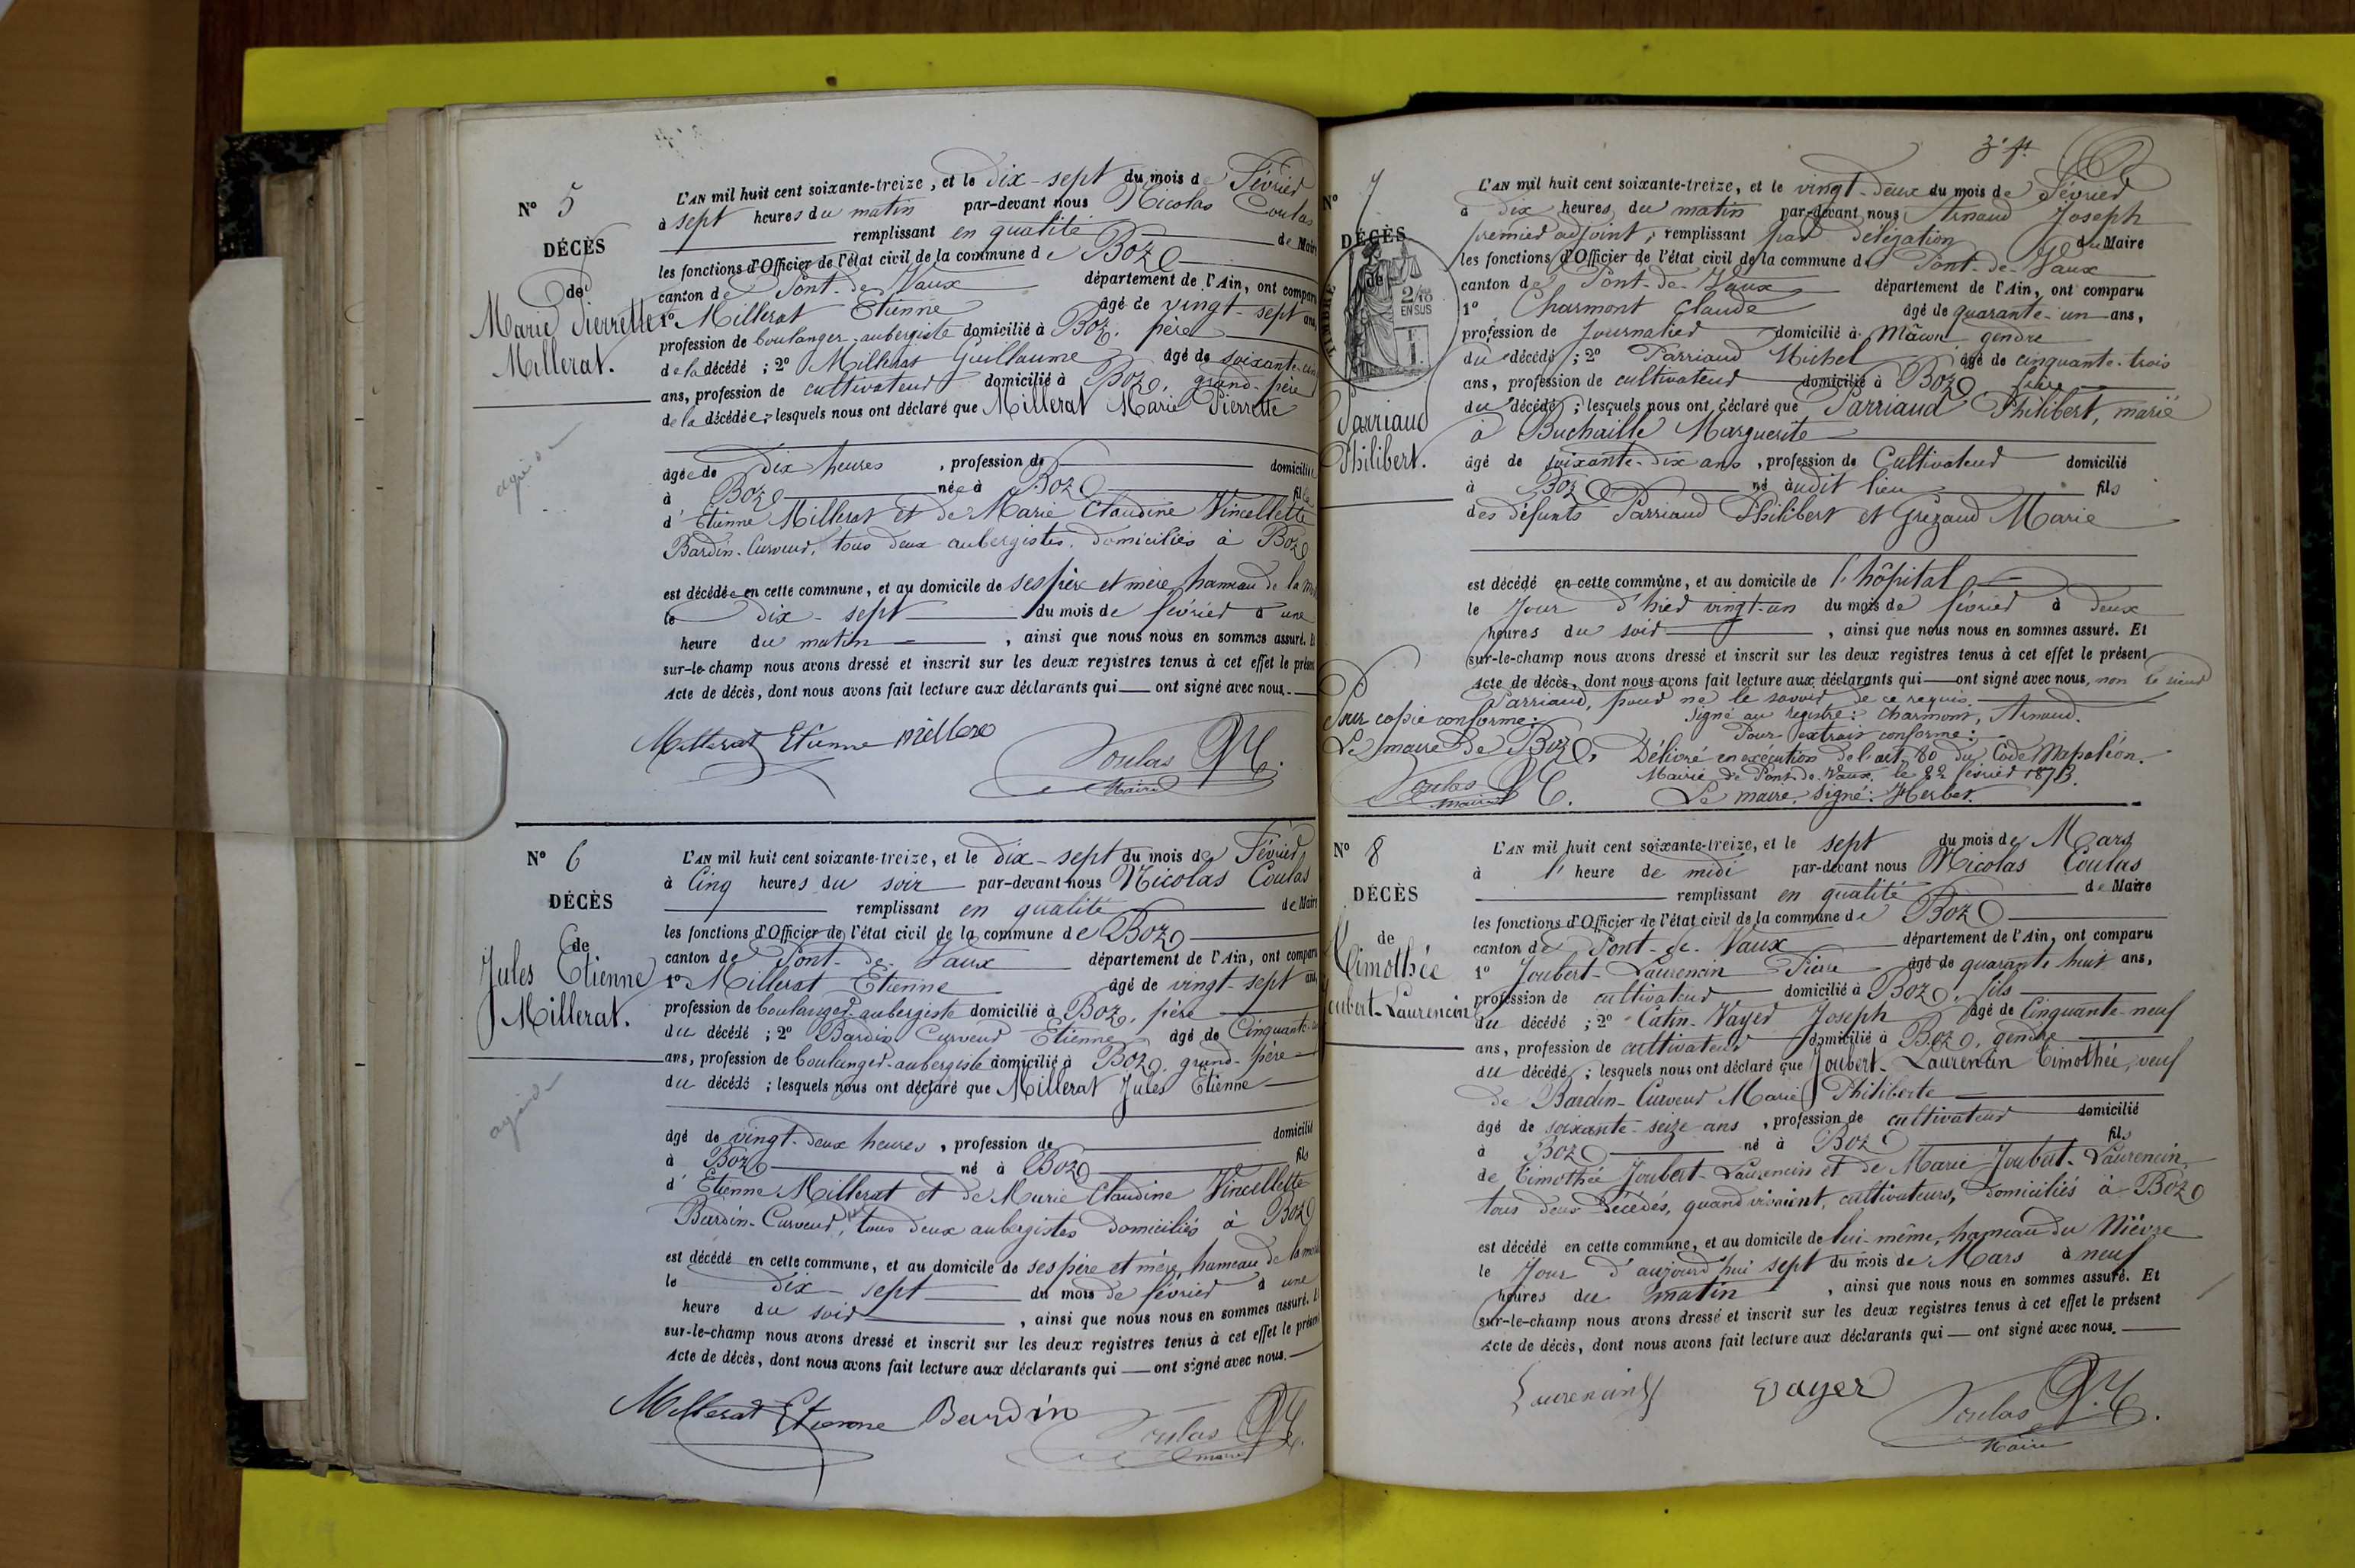 N° 5
DÉCÈS
de
Marie Pierrette
Millerat.
L'AN mil huit cent soixante-treize, et le dix-sept du mois de Février
à sept heures du matin par-devant nous Nicolas Coulas
remplissant en qualité de Maire
les fonctions d'Officier de l'état civil de la commune de Boz
canton de Pont-de-Vaux département de l'Ain, ont comparu
1° Millerat Etienne âgé de vingt-sept ans,
profession de boulanger-aubergiste domicilié à Boz, père
de la décédé ; 2° Millerat Guillaume âgé de soixante-
ans, profession de cultivateur domicilié à Boz, grand-père
de la décédée ; lesquels nous ont déclaré que Millerat Marie Pierrette
âgée de dix heures , profession de domicilié
à Boz née à Boz fille
d'Etienne Millerat et de Marie Claudine Vincellette
Bardin-Curveur, tous deux aubergistes, domiciliés à Boz
est décédée en cette commune, et au domicile de ses père et mère, hameau de la
le dix-sept du mois de février à une
heure du matin , ainsi que nous nous en sommes assuré. Et
sur-le-champ nous avons dressé et inscrit sur les deux registres tenus à cet effet le présent
Acte de décès, dont nous avons fait lecture aux déclarants qui ont signé avec nous.
Millerat Etienne Coulas
Maire
N° 6
DÉCÈS
de
Jules Etienne
Millerat.
L'AN mil huit cent soixante-treize, et le dix-sept du mois de Février
à Cinq heures du soir par-devant nous Nicolas Coulas
remplissant en qualité de Maire
les fonctions d'Officier de l'état civil de la commune de Boz
canton de Pont-de-Vaux département de l'Ain, ont comparu
1° Millerat Etienne âgé de vingt-sept ans
profession de boulanger-aubergiste domicilié à Boz, père
du décédé ; 2° Bardin Curveur Etienne âgé de Cinquante-
ans, profession de boulanger-aubergiste domicilié à Boz, grand-père
du décédé ; lesquels nous ont déclaré que Millerat Jules Etienne
âgé de vingt-deux heures , profession de domicilié
à Boz né à Boz fils
d'Etienne Millerat et de Marie Claudine Vincellette
Bardin-Curveur, tous deux aubergistes domiciliés à Boz
est décédé en cette commune, et au domicile de ses père et mère, hameau de la
le dix-sept du mois de février à une
heure du soir , ainsi que nous nous en sommes assuré. Et
sur-le-champ nous avons dressé et inscrit sur les deux registres tenus à cet effet le présent
Acte de décès, dont nous avons fait lecture aux déclarants qui ont signé avec nous.
Millerat Etienne Bardin Coulas
maire
N° 7
DÉCÈS
de
TIMBRE
2/10
EN SUS
Parriaud
Philibert.
L'AN mil huit cent soixante-treize, et le vingt-deux du mois de Février
à dix heures du matin par-devant nous Arnaud Joseph
premier adjoint, remplissant par délégation du Maire
les fonctions d'Officier de l'état civil de la commune de Pont-de-Vaux
canton de Pont-de-Vaux département de l'Ain, ont comparu
1° Charmont Claude âgé de quarante-un ans,
profession de Journalier domicilié à Mâcon gendre
du décédé ; 2° Parriaud Michel âgé de cinquante-trois
ans, profession de cultivateur domicilié à Boz frère
du décédé ; lesquels nous ont déclaré que Parriaud Philibert, marié
à Buchaille Marguerite
âgé de soixante-dix ans , profession de Cultivateur domicilié
à Boz né audit lieu fils
des défunts Parriaud Philibert et Grezaud Marie
est décédé en cette commune, et au domicile de l'hôpital
le Jour d'hier vingt-un du mois de février à deux
heures du soir , ainsi que nous nous en sommes assuré. Et
sur-le-champ nous avons dressé et inscrit sur les deux registres tenus à cet effet le présent
Acte de décès, dont nous avons fait lecture aux déclarants qui ont signé avec nous, non le sieur
Parriaud, pour ne le savoir de ce requis.
Signé au registre : Charmont, Arnaud.
Pour extrait conforme :
Délivré en exécution de l'art. 80 du Code Napoléon.
Mairie de Pont-de-Vaux, le 22 février 1873.
Le maire, Signé : Herbet.
Pour copie conforme :
Le maire de Boz,
Coulas
maire
N° 8
DÉCÈS
de
Timothée
Joubert-Laurencin
L'AN mil huit cent soixante-treize, et le sept du mois de Mars
à l'heure de midi par-devant nous Nicolas Coulas
remplissant en qualité de Maire
les fonctions d'Officier de l'état civil de la commune de Boz
canton de Pont-de-Vaux département de l'Ain, ont comparu
1° Joubert-Laurencin Pierre âgé de quarante huit ans,
profession de cultivateur domicilié à Boz, fils
du décédé ; 2° Catin-Vayer Joseph âgé de Cinquante-neuf
ans, profession de cultivateur domicilié à Boz, gendre
du décédé ; lesquels nous ont déclaré que Joubert-Laurencin Timothée, veuf
de Bardin-Curveur Marie Philiberte
âgé de soixante-seize ans , profession de cultivateur domicilié
à Boz né à Boz fils
de Timothée Joubert-Laurencin et de Marie Joubert-Laurencin,
tous deux décédés, quand vivaient, cultivateurs, domiciliés à Boz
est décédé en cette commune, et au domicile de lui-même, hameau du Nièvre
le Jour d'aujourd'hui sept du mois de Mars à neuf
heures du matin , ainsi que nous nous en sommes assuré. Et
sur-le-champ nous avons dressé et inscrit sur les deux registres tenus à cet effet le présent
Acte de décès, dont nous avons fait lecture aux déclarants qui ont signé avec nous.
Laurencin Vayer Coulas
Maire